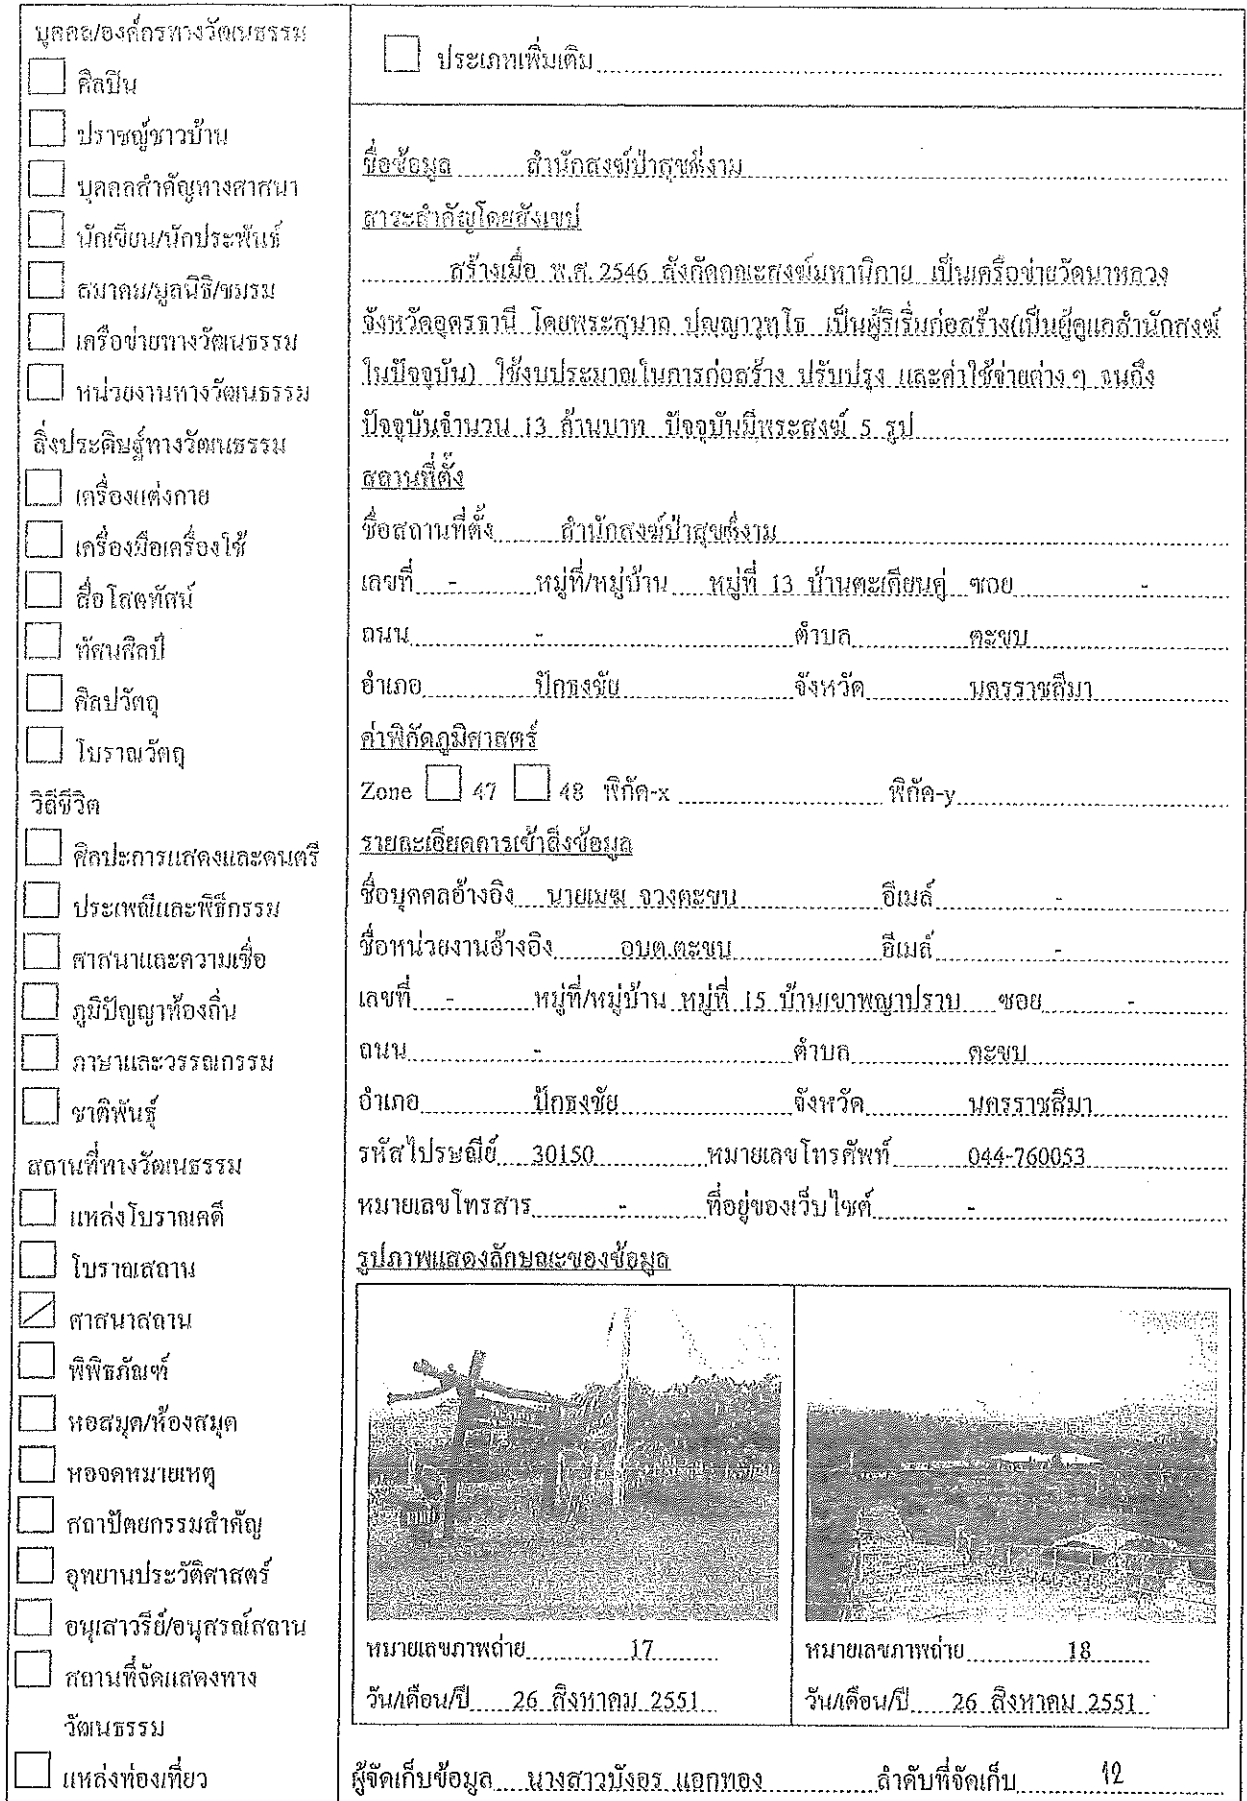 บุคคล/องค์กรทางวัฒนธรรม
ศิลปิน
ปราชญ์ชาวบ้าน
บุคคลสำคัญทางศาสนา
นักเขียน/นักประพันธ์
สมาคม/มูลนิธิ/ชมรม
เครือข่ายทางวัฒนธรรม
หน่วยงานทางวัฒนธรรม
สิ่งประดิษฐ์ทางวัฒนธรรม
เครื่องแต่งกาย
เครื่องมือเครื่องใช้
สื่อโสตทัศน์
ทัศนศิลป์
ศิลปวัตถุ
โบราณวัตถุ
วิถีชีวิต
ศิลปะการแสดงและดนตรี
ประเพณีและพิธีกรรม
ศาสนาและความเชื่อ
ภูมิปัญญาท้องถิ่น
ภาษาและวรรณกรรม
ชาติพันธุ์
สถานที่ทางวัฒนธรรม
แหล่งโบราณคดี
โบราณสถาน
ศาสนาสถาน
พิพิธภัณฑ์
หอสมุด/ห้องสมุด
หอจดหมายเหตุ
สถาปัตยกรรมสำคัญ
อุทยานประวัติศาสตร์
อนุเสาวรีย์/อนุสรณ์สถาน
สถานที่จัดแสดงทาง
วัฒนธรรม
แหล่งท่องเที่ยว
ประเภทเพิ่มเติม
ชื่อข้อมูล สำนักสงฆ์ป่าสุขต๊งาม
สาระสำคัญโดยสังเขป
สร้างเมื่อ พ.ศ. 2546 สังกัดคณะสงฆ์มหานิกาย เป็นเครือข่ายวัดนาหลวง
จังหวัดอุดรธานี โดยพระสุนาถ ปุญญาวุฑโธ เป็นผู้ริเริ่มก่อสร้าง(เป็นผู้ดูแลสำนักสงฆ์
ในปัจจุบัน) ใช้งบประมาณในการก่อสร้าง ปรับปรุง และค่าใช้จ่ายต่าง ๆ จนถึง
ปัจจุบันจำนวน 13 ล้านบาท ปัจจุบันมีพระสงฆ์ 5 รูป
สถานที่ตั้ง
ชื่อสถานที่ตั้ง สำนักสงฆ์ป่าสุขต๊งาม
เลขที่ - หมู่ที่/หมู่บ้าน หมู่ที่ 13 บ้านตะเคียนคู่ ซอย -
ถนน - ตำบล ตะขบ
อำเภอ ปักธงชัย จังหวัด นครราชสีมา
ค่าพิกัดภูมิศาสตร์
Zone 47 48 พิกัด-x พิกัด-y
รายละเอียดการเข้าถึงข้อมูล
ชื่อบุคคลอ้างอิง นายเมฆ จวงตะขบ อีเมล์ -
ชื่อหน่วยงานอ้างอิง อบต.ตะขบ อีเมล์ -
เลขที่ - หมู่ที่/หมู่บ้าน หมู่ที่ 15 บ้านเขาพญาปราบ ซอย -
ถนน - ตำบล ตะขบ
อำเภอ ปักธงชัย จังหวัด นครราชสีมา
รหัสไปรษณีย์ 30150 หมายเลขโทรศัพท์ 044-760053
หมายเลขโทรสาร - ที่อยู่ของเว็บไซต์ -
รูปภาพแสดงลักษณะของข้อมูล
หมายเลขภาพถ่าย 17
วัน/เดือน/ปี 26 สิงหาคม 2551
หมายเลขภาพถ่าย 18
วัน/เดือน/ปี 26 สิงหาคม 2551
ผู้จัดเก็บข้อมูล นางสาวบังอร แอกทอง ลำดับที่จัดเก็บ 12